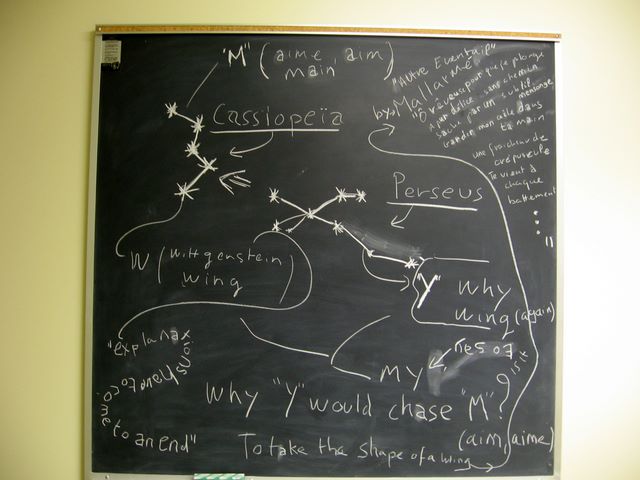 "M" (aime, aim
main)
Cassiopeïa
"Autre Eventail"
by Mallarmé
"O rêveuse, pour que je plonge
Au pur délice sans chemin
Sache, par un subtil mensonge
Garder mon aile dans
ta main
une fraîcheur de
crépuscule
Te vient à
chaque
battement
"
Perseus
W (Wittgenstein
wing)
"Y" why
wing (again)
"explanations have to come to an end"
to say
MY
is it
Why "Y" would chase "M"?
(aim, aime)
To take the shape of a wing